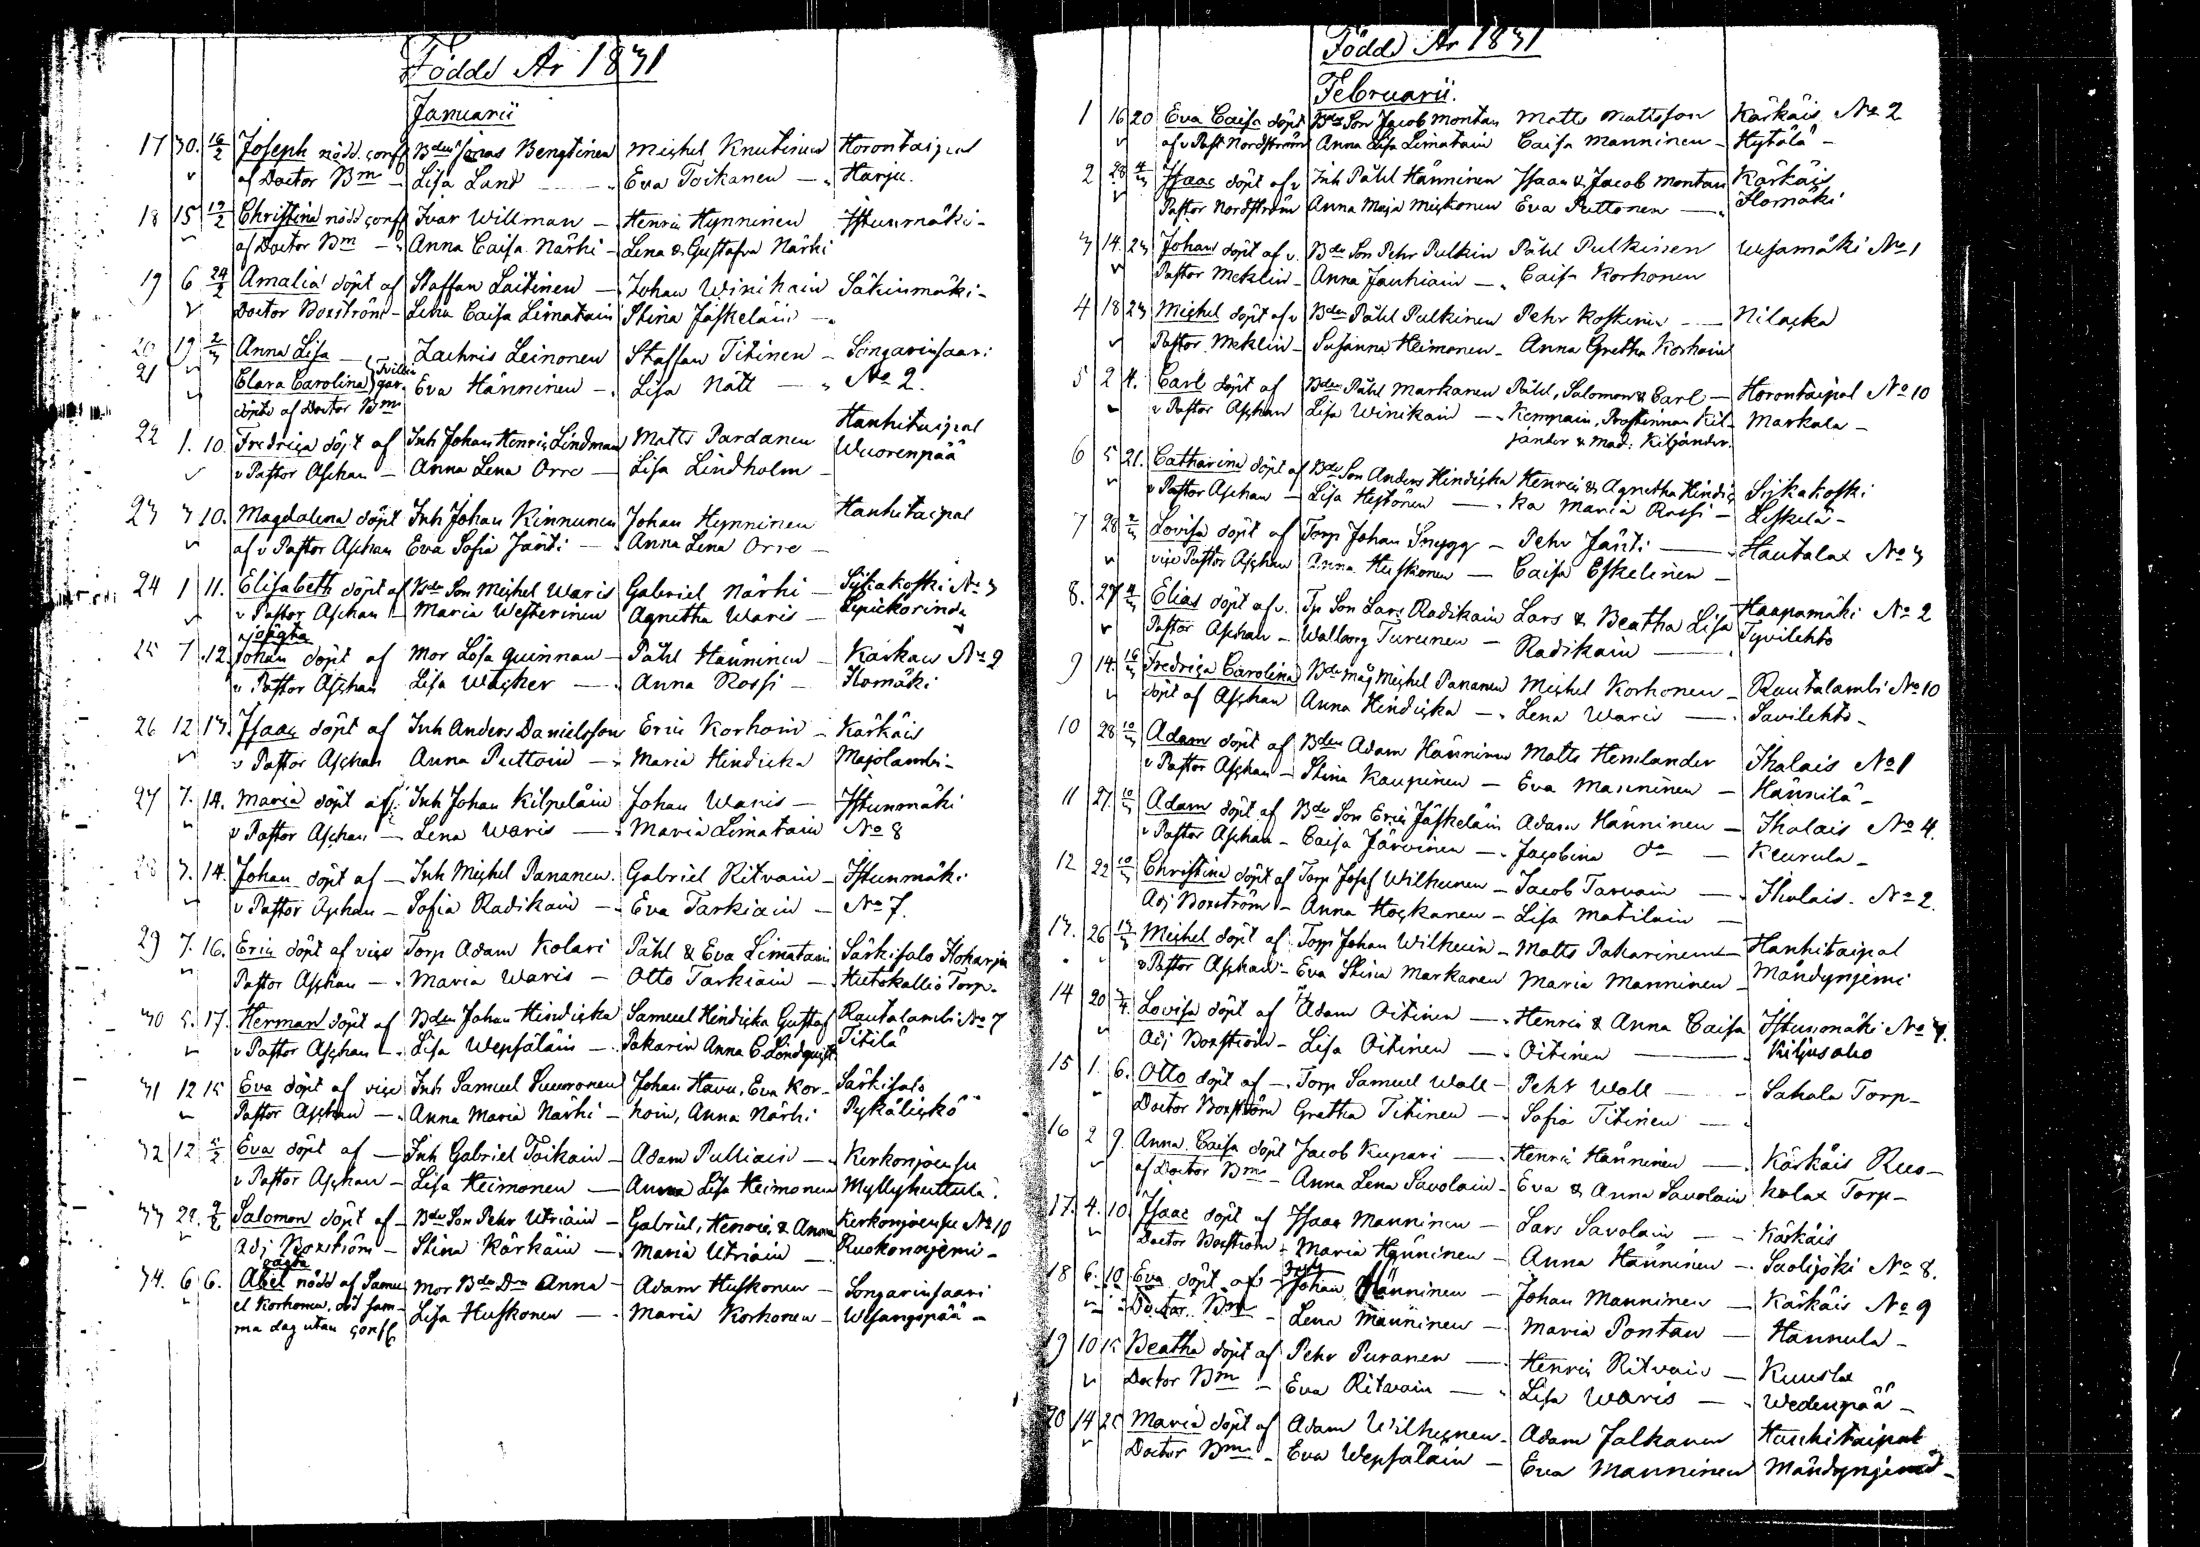 Födde År 1831
Januarii
17 30. 16/2 Joseph nödd. conff Bden Jonas Bengtinen Michel Knutinen Horontaipal
af Doctor Bm — Lisa Lund — Eva Toikanen — Harju.
18 15 19/2 Christina nödd conff Ivar Willman — Henric Hynninen Istunmäki -
af Doctor Bm — Anna Caisa Närhi — Lena & Gustafva Närhi
19 6 24/2 Amalia döpt af Staffan Laitinen — Johan Winikain Säkinmäki -
Doctor Boxström — Lena Caisa Limatain Stina Jäskeläin —
20 19 2/3 Anna Lisa — Zachris Leinonen Staffan Titinen — Songarinsaari
21 Clara Carolina } Tvillingar Eva Hänninen — Lisa Nätt — No 2.
döpte af Doctor Bm
22 1. 10. Fredrica döpt af Inh Johan Henric Lindman Matts Pardanen Hanhitaipal
v Pastor Aschan — Anna Lena Orre — Lisa Lindholm — Wuorenpää
23 3 10. Magdalena döpt Inh Johan Kinnunen Johan Hynninen Hanhitaipal
af v Pastor Aschan Eva Sofia Jänti — Anna Lena Orre —
24 1 11. Elisabeth döpt af Bde Son Michel Waris Gabriel Närhi — Sijkakoski No 3
v Pastor Aschan — Maria Westerinen Agnetha Waris — Lepickörinda
25 7 12. oägta Johan döpt af Mor Lösa quinnan — Påhl Hänninen — Kärkäis No 9
v Pastor Aschan Lisa Wacker — Anna Rossi — Ilomäki
26 12 13. Isaac döpt af Inh Anders Danielsson Eric Korhoin — Kärkäis
v Pastor Aschan Anna Puttoin — Maria Hindicka Majolambi -
27 7. 14. Maria döpt af Inh Johan Kilpeläin Johan Waris — Istunmäki
v Pastor Aschan — Lena Waris — Maria Limatain No 8
28 3. 14. Johan döpt af — Inh Michel Pananen. Gabriel Ritvain — Istunmäki
v Pastor Aschan — Sofia Radikain — Eva Tarkiain — No 7.
29 7. 16. Eric döpt af vice Torp Adam Kolari Påhl & Eva Limatain Särkisalo Iloharju
Pastor Aschan — Maria Waris — Otto Tarkiain — Hutokallio Torp.
30 5. 17. Herman döpt af Bden Johan Hindicka Samuel Hindicka Gustaf Rautalambi No 7
v Pastor Aschan — Lisa Wepsäläin — Pakarin Anna C. Lindquist Titilä
31 12 15 Eva döpt af vice Inh Samuel Suuronen Johan Havu, Eva Kor- Särkisalo
Pastor Aschan — Anna Maria Närhi — hoin, Anna Närhi Pykälickö
32 12 5/2 Eva döpt af — Inh Gabriel Toikain — Adam Pulliain — Kerkonjoensu
v Pastor Aschan — Lisa Heimonen — Anna Lisa Heimonen Myllyhuttula.
33 29. 9/2 Salomon döpt af — Bde Son Pehr Utriain — Gabriel, Henric & Anna Kerkonjoensu No 10
Adj Boxström — Stina Kärkäin — Maria Utriain — Ruokoniemi -
34. 6 6. oägta Abel nödd af Samu Mor Bde Dr Anna — Adam Huskonen — Songarinsaari
el Korhonen. död sam- Lisa Huskonen — Maria Korhonen — Wesangopää -
ma dag utan conff
Födde År 1831
Februarii.
1 16 20 Eva Caisa döpt Bde Son Jacob Montan Matts Mattsson Kärkäis No 2
af v Past Nordström Anna Lisa Limatain Caisa Manninen — Hytölä -
2 28 4/3 Isaac döpt af v Inh Påhl Hänninen Isaac & Jacob Montan Kärkäis
Pastor Nordström Anna Maja Mickonen Eva Puttonen — Ilomäki
3 14. 23 Johan döpt af v. Bde Son Pehr Pulkin Påhl Pulkinen Wesamäki No 1
Pastor Meklin — Anna Jauhiain — Caisa Korhonen
4 18 23 Michel döpt af v Bden Påhl Pulkinen Pehr Koskinen — Nilacka
Pastor Meklin — Susanna Heimonen — Anna Gretha Korhoin
5 2 4. Carl döpt af Bden Påhl Markanen Påhl, Salomon & Carl — Horontaipal No 10
v Pastor Aschan Lisa Winikain — Kemppain, Prostinnan Kil- Markala -
jander & Mad: Kiljander.
6 5 21. Catharina döpt af Bde Son Anders Hindicka Henric & Agnetha Hindic Sijkakoski
v Pastor Aschan — Lisa Hytönen — ka Maria Rossi — Liskelä -
7 28 2/3 Lovisa döpt af Torp Johan Snygg — Pehr Jänti — Hautalax No 3
vice Pastor Aschan Anna Huskonen — Caisa Eskelinen —
8. 27 4/3 Elias döpt af v. Tp Son Lars Radikain Lars & Beatha Lisa Haapamäki No 2
Pastor Aschan — Walborg Turunen — Radikain — Tyvilehto
9 14. 16/3 Fredrica Carolina Bde Måg Michel Pananen Michel Korhonen — Rautalambi No 10
döpt af Aschan Anna Hindicka — Lena Waris — Savilehto -
10 28 10/3 Adam döpt af Bden Adam Hänninen Matts Hemlander Ihalais No 1
v Pastor Aschan — Stina Kaupinen — Eva Manninen — Hännilä -
11 27. 10/3 Adam döpt af Bde Son Eric Jäskeläin Adam Hänninen — Ihalais No 4.
v Pastor Aschan — Caisa Järvinen — Jacobina do — Keurula -
12 22 10/3 Christina döpt af Torp Josef Wilhunen — Jacob Tarvain — Ihalais. No 2.
Adj Boxström — Anna Hockanen — Lisa Matilain —
13. 26 13/3 Michel döpt af Torp Johan Wilhuin — Matts Pakarinen — Hanhitaipal
v Pastor Aschan — Eva Stina Markanen Maria Manninen — Mändynjemi
14 20 3/4. Lovisa döpt af Adam Oitinen — Henric & Anna Caisa Istunmäki No 7.
Adj Boxström — Lisa Oitinen — Oitinen — Kiljusaho
15 1. 6. Otto döpt af — Torp Samuel Wall — Pehr Wall — Sahala Torp -
Doctor Boxström Gretha Titinen — Sofia Titinen —
16 2 9. Anna Caisa döpt Jacob Kupari — Henric Hänninen — Kärkäis Ruo-
af Doctor Bm — Anna Lena Savolain — Eva & Anna Savolain kolax Torp -
17. 4. 10. Isaac döpt af Isaac Manninen — Lars Savolain — Kärkäis
Doctor Boxström — Maria Hänninen — Anna Hänninen — Saolijöki No 8.
18 6. 10 Eva döpt af Johan Hänninen — Johan Manninen — Kärkäis No 9
Doctor Bm — Lena Manninen — Maria Pontan — Hannula -
19 10 15 Beatha döpt af Pehr Puranen — Henric Ritvain — Kuusla
Doctor Bm — Eva Ritvain — Lisa Waris — Wedenpää -
20 14 25 Maria döpt af Adam Wilhunen — Adam Jalkanen Hanhitaipal
Doctor Bm — Eva Wepsäläin — Eva Manninen Mändynjemi -